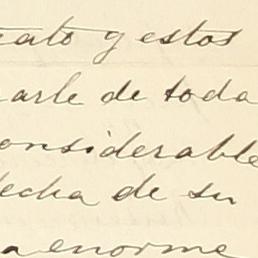 cato y estos
arle de toda
onsiderable
echa de su
a enorme